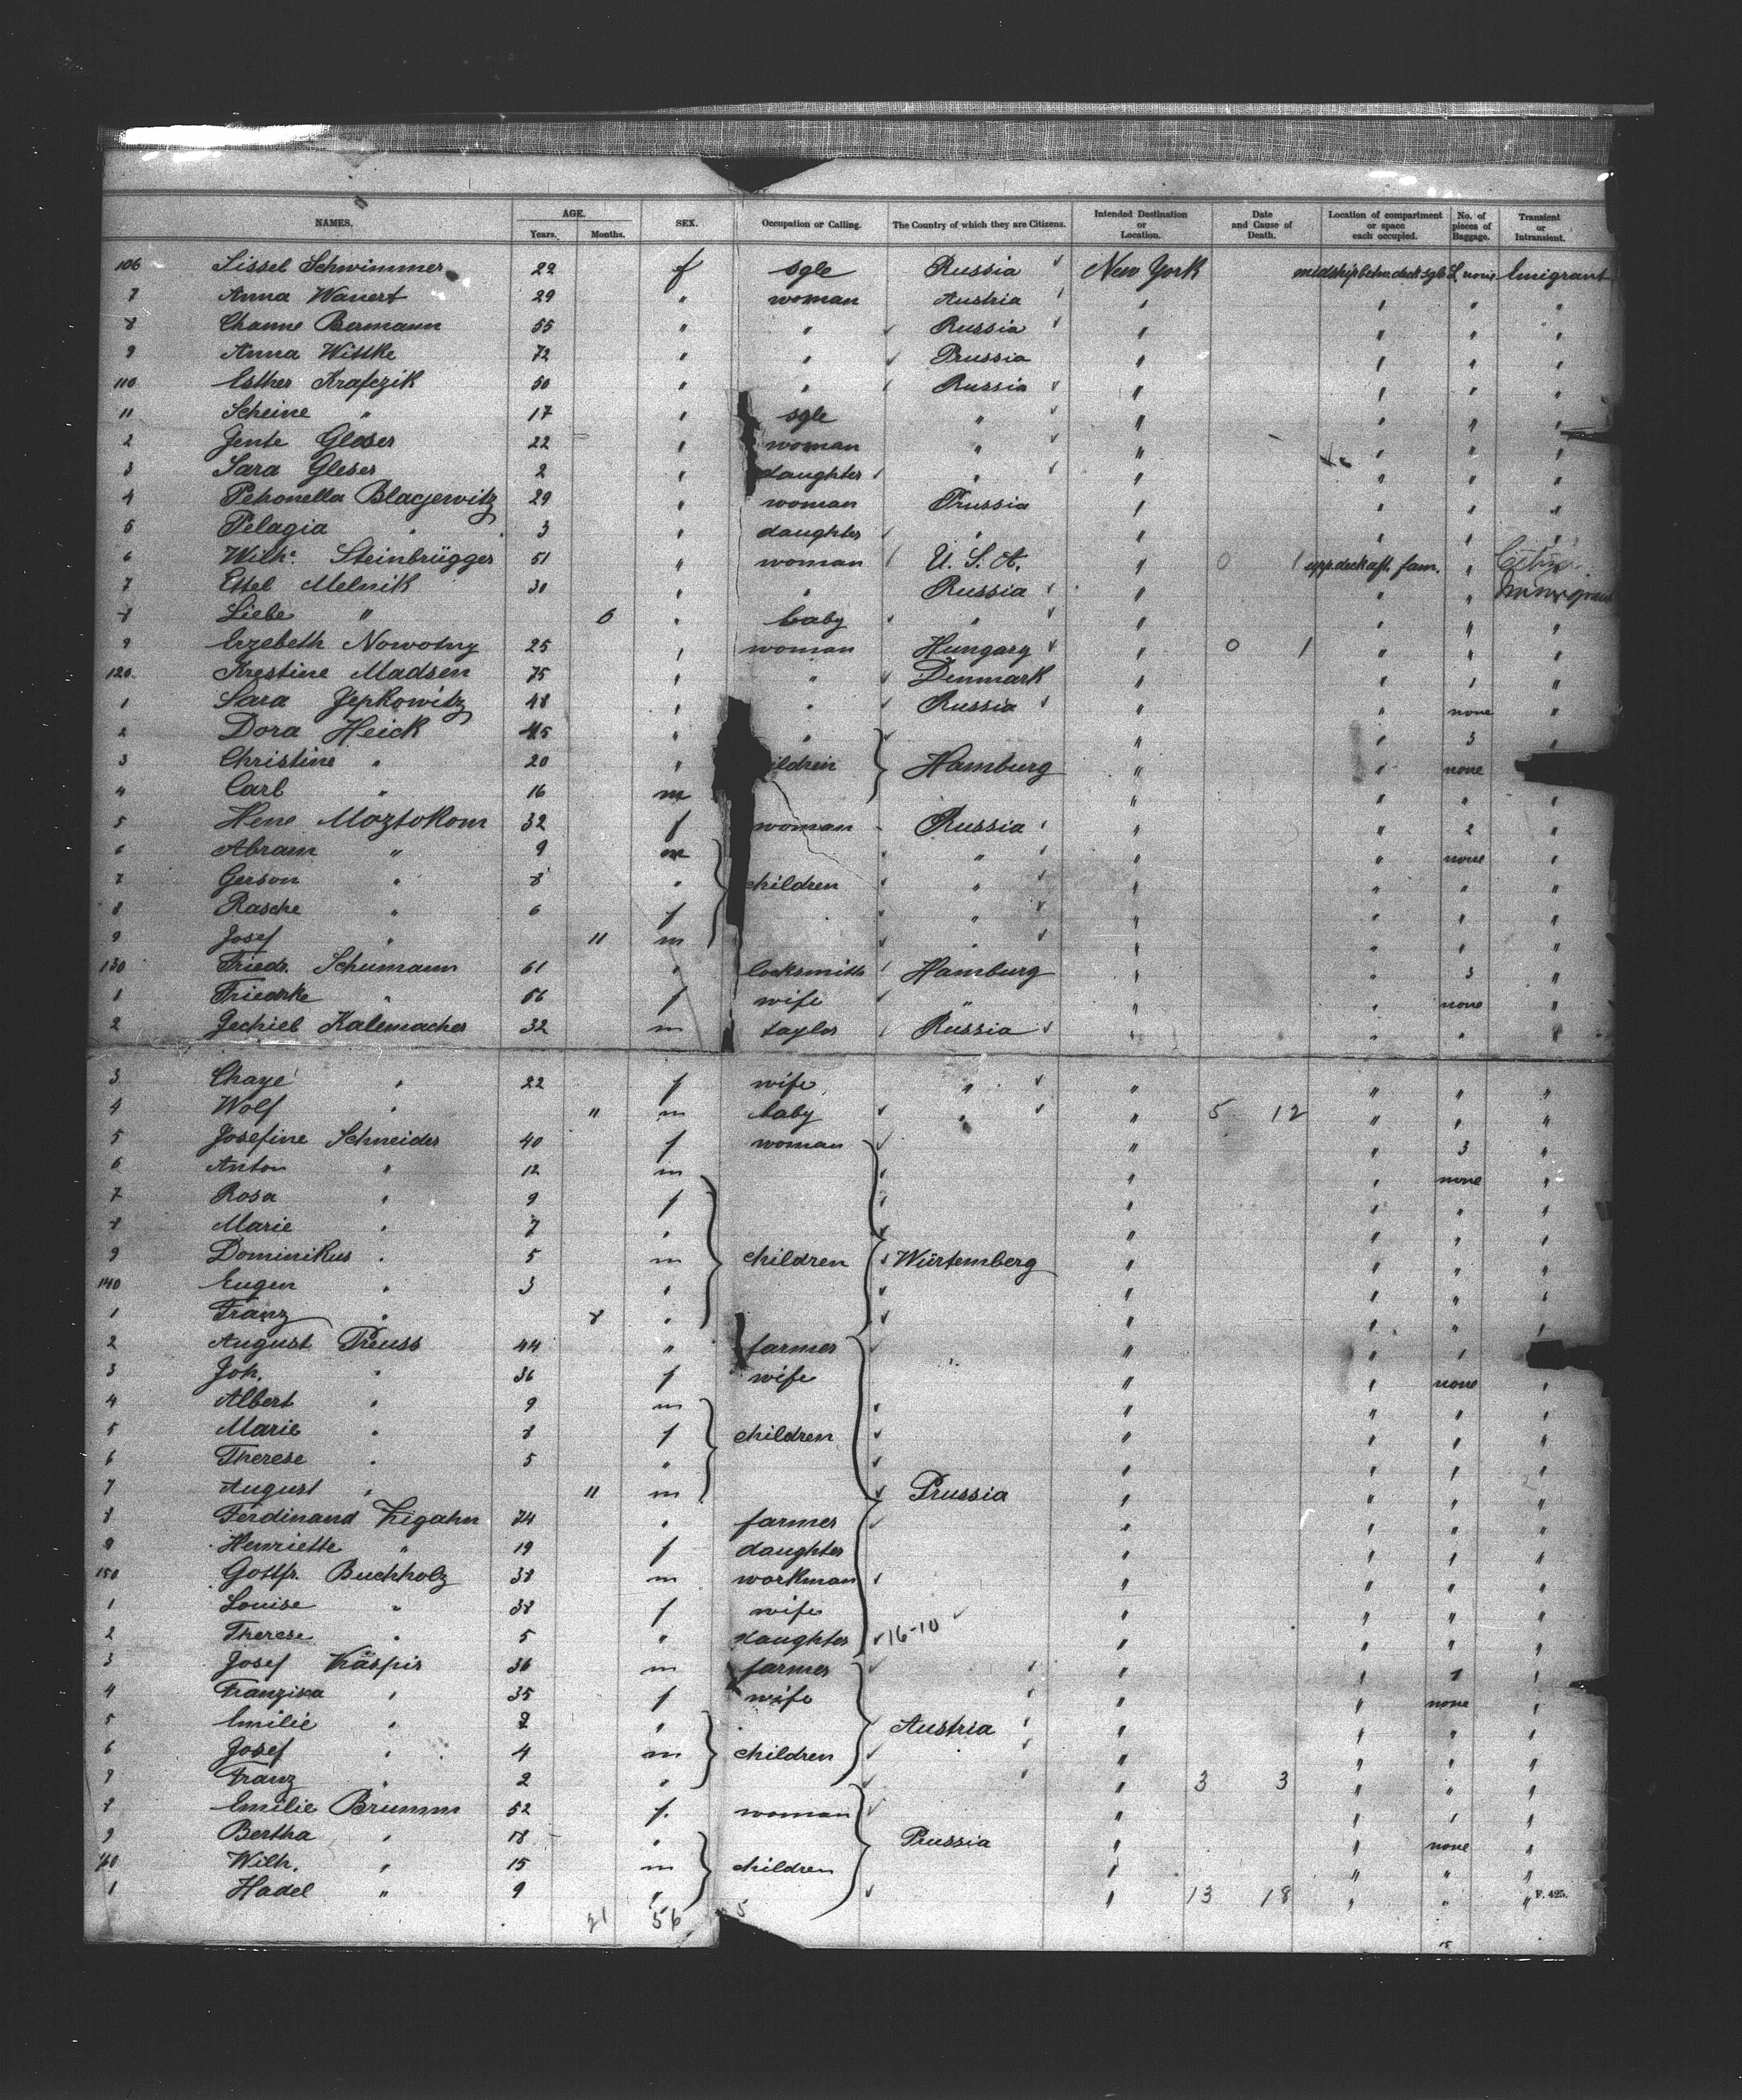 NAMES. AGE. Years. Months. SEX. Occupation or Calling. The Country of which they are Citizens. Intended Destination or Location. Date and Cause of Death. Location of compartment or space each occupied. No. of pieces of Baggage. Transient or Intransient.
106 Sissel Schwimmer 22 f sgle Russia New York none Emigrant
7 Anna Wanert 29 " woman Austria " " " "
8 Channe Bermann 55 " " Russia " " " "
9 Anna Wittke 72 " " Prussia " " " "
110 Esther Krafczik 50 " " Russia " " " "
11 Scheine " 17 " sgle " " " " "
2 Jente Gleser 22 " woman " " " " "
3 Sara Gleser 2 " daughter " " " " "
4 Petronella Blacjewitz 29 " woman Prussia " " " "
5 Pelagia " 3 " daughter " " " " "
6 Wilhe. Steinbrügger 51 " woman U. S. A. " 0 1 upp. deck aft. fam. "
7 Ettel Melnik 30 " " Russia " " "
8 Liebe " 6 " baby " " " " "
9 Erzebeth Nowotny 25 " woman Hungary " 0 1 " " "
120 Krestine Madsen 75 " " Denmark " " 1 "
1 Sara Jepkowitz 48 " " Russia " " none "
2 Dora Heick 45 " " " " 3 "
3 Christine " 20 " ildren Hamburg " " none
4 Carl " 16 m " " " "
5 Hene Moztokom 32 f woman Russia " " 2 "
6 Abram " 9 m " " " none "
7 Gerson " 8 " children " " " " "
8 Rasche " 6 f " " " " "
9 Josef " 11 m " " " " "
130 Friedr. Schumann 61 " locksmith Hamburg " " 3 "
1 Friedrke " 56 f wife " " " none "
2 Jechiel Kalemacher 32 m taylor Russia " " " "
3 Chaye " 22 f wife " " " " "
4 Wolf " 11 m baby " " 5 12 " " "
5 Josefine Schneider 40 f woman " " 3 "
6 Anton " 12 m " " none "
7 Rosa " 9 f " " " "
8 Marie " 7 " " " " "
9 Dominikus " 5 m children Würtemberg " " " "
140 Eugen " 3 " " " " "
1 Franz " 8 " " " " "
2 August Preuss 44 " farmer " " 1
3 Joh. " 36 f wife " " none "
4 Albert " 9 m " " " "
5 Marie " 8 f children " " " "
6 Therese " 5 " " " " "
7 August " 11 m Prussia " " " "
8 Ferdinand Zigahn 74 " farmer " " " "
9 Henriette " 19 f daughter " " " "
150 Gottfr. Buchholz 38 m workman " " " "
1 Louise " 38 f wife " " " "
2 Therese " 5 " daughter 16-10 " " " "
3 Josef Käspir 36 m farmer " " 1 "
4 Franziska " 35 f wife " " none "
5 Emilie " " Austria " " " "
6 Josef " 4 m children " " " "
7 Franz " 2 " " 3 3 " " "
8 Emilie Brumm 52 f. woman " " 1 "
9 Bertha " 18 " Prussia " " none "
160 Wilh. " 15 m children " " " "
1 Hadel " 9 " " 13 18 " " " F. 425.
21 56 5